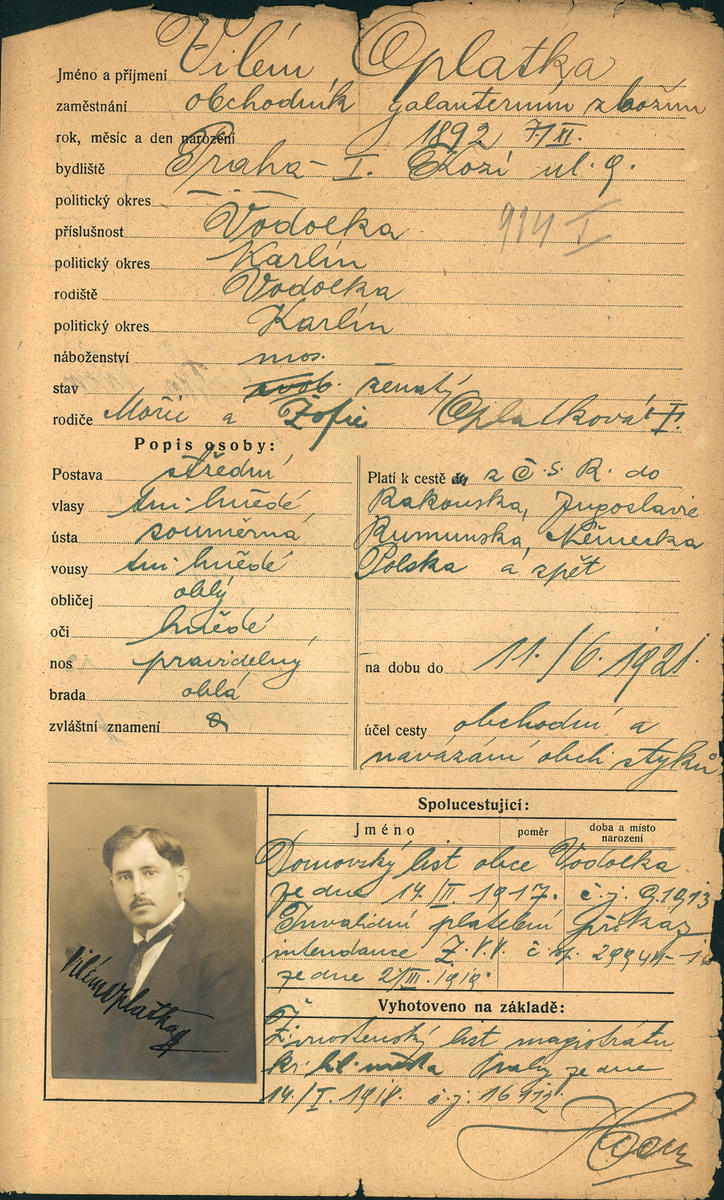 Jméno a příjmení Vilém Oplatka
zaměstnání obchodník galanterním zbožím
rok, měsíc a den narození 1892 7/XI.
bydliště Praha - I. Kozí ul. 9.
politický okres — —
příslušnost Vodolka
914 I
politický okres Karlín
rodiště Vodolka
politický okres Karlín
náboženství mos.
stav svob. ženatý
rodiče Mořic a Žofie Oplatková
Popis osoby:
Postava střední
vlasy tm. hnědé
ústa souměrná
vousy tm. hnědé
obličej oblý
oči hnědé
nos pravidelný
brada oblá
zvláštní znamení
Platí k cestě z Č. S. R. do
Rakouska, Jugoslavie
Rumunska, Německa
Polska a zpět
na dobu do 11./6. 1921.
účel cesty obchodní a
navázání obch. styků
Spolucestující:
Jméno poměr doba a místo narození
Domovský list obce Vodolka
ze dne 14. 1917. č. j.
Invalidní platební příkaz
intendance Z. V. V. č.
ze dne 2/III. 1919.
Vyhotoveno na základě:
Živnostenský list magistrátu
kr. hl. města Prahy ze dne
14/I. 1918. č. j.
Vilém Oplatka